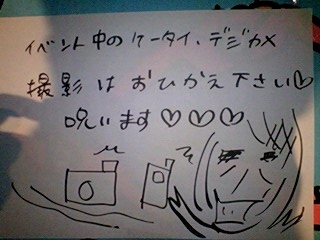 イベント中のケータイ、デジカメ
撮影はおひかえ下さい♡
呪います♡♡♡